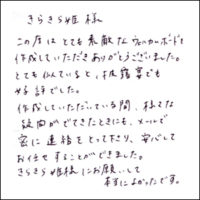 きらきら姫 様
この度はとても素敵なウェルカムボードを
作成していただきありがとうございました。
とても似ていると、披露宴でも
好評でした。
作成していただいている間、様々な
疑問がでてきたときにも、メールで
密に連絡をとって下さり、安心して
お任せすることができました。
きらきら姫様にお願いして
本当によかったです。